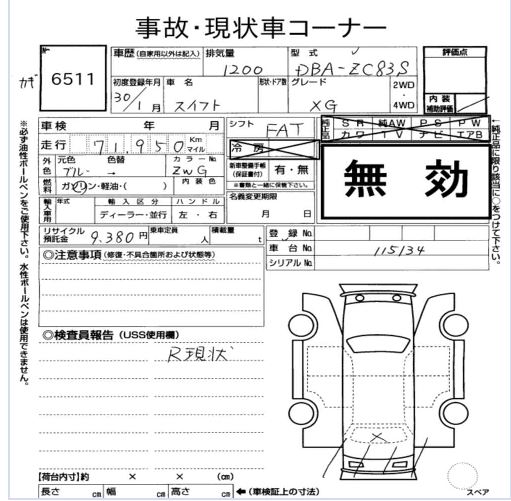 事故・現状車コーナー
№ 6511
カギ
車歴 (自家用以外は記入) 排気量 1200 型式 DBA-ZC83S
評価点
初度登録年月 30/1月 車名 スイフト 形状・ドア数 グレード XG 2WD・4WD
内装補助評価
車検 年 月
シフト FAT
純正品 SR 純AW PS PW
カワ TV ナビ エアB
走行 71,950 Km マイル
冷房
外色 元色 ブルー 色替 → カラーNo ZWG
新車整備手帳(保証書付) 有・無
※書類と一緒に保管下さい。
無効
燃料 ガソリン・軽油・( ) 内装色
名義変更期限
月 日
輸入車用 年式 輸入区分 ハンドル
ディーラー・並行 左・右
リサイクル預託金 9,380円 乗車定員 人 積載量 t
登録No.
車台No. 115134
シリアルNo.
◎注意事項 (修復・不具合箇所および状態等)
◎検査員報告 (USS使用欄)
R現状
【荷台内寸】約 × × (cm)
長さ cm 幅 cm 高さ cm ←(車検証上の寸法)
スペア
※必ず油性ボールペンをご使用下さい。水性ボールペンは使用できません。
←純正品に限り該当に○をつけて下さい。